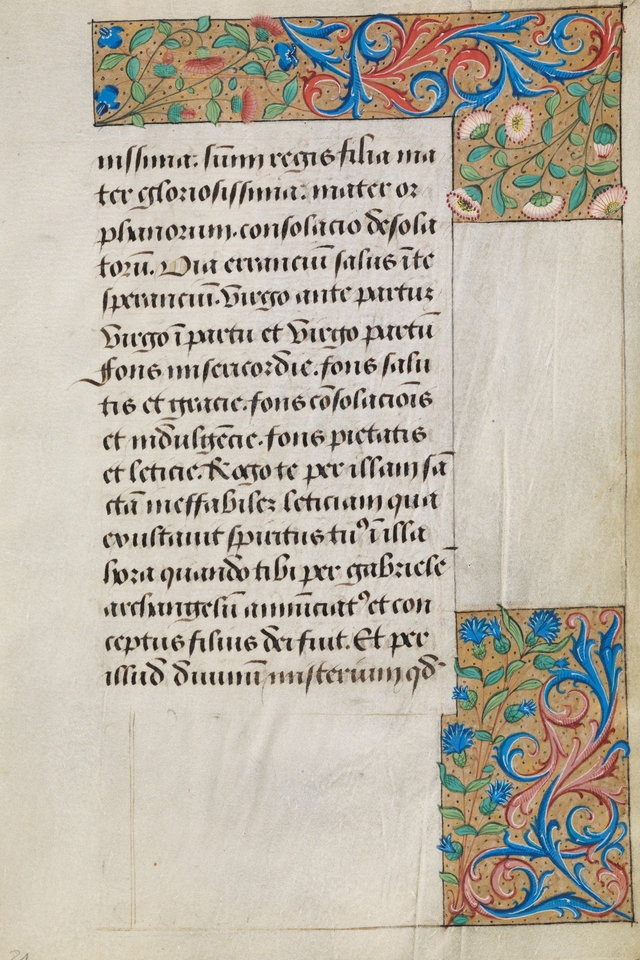 nissima. sum̄i regis filia ma
ter gloriosissima. mater or
phanorum. consolacio desola
torū. Via erranciū salus ī te
speranciū. Virgo ante partuꝫ
virgo ī partu et virgo partū
fons misericordie. fons salu
tis et gracie. fons cōsolaciōis
et indulgēcie. fons pietatis
et leticie. Rogo te per illam sā
ctā ineffabileꝫ leticiam qua
exultauit spiritus tuꝰ ī illa
hora quando tibi per gabrielē
archangelū annūciatꝰ et con
ceptus filius dei fuit. Et per
illud diuinū misterium qđ